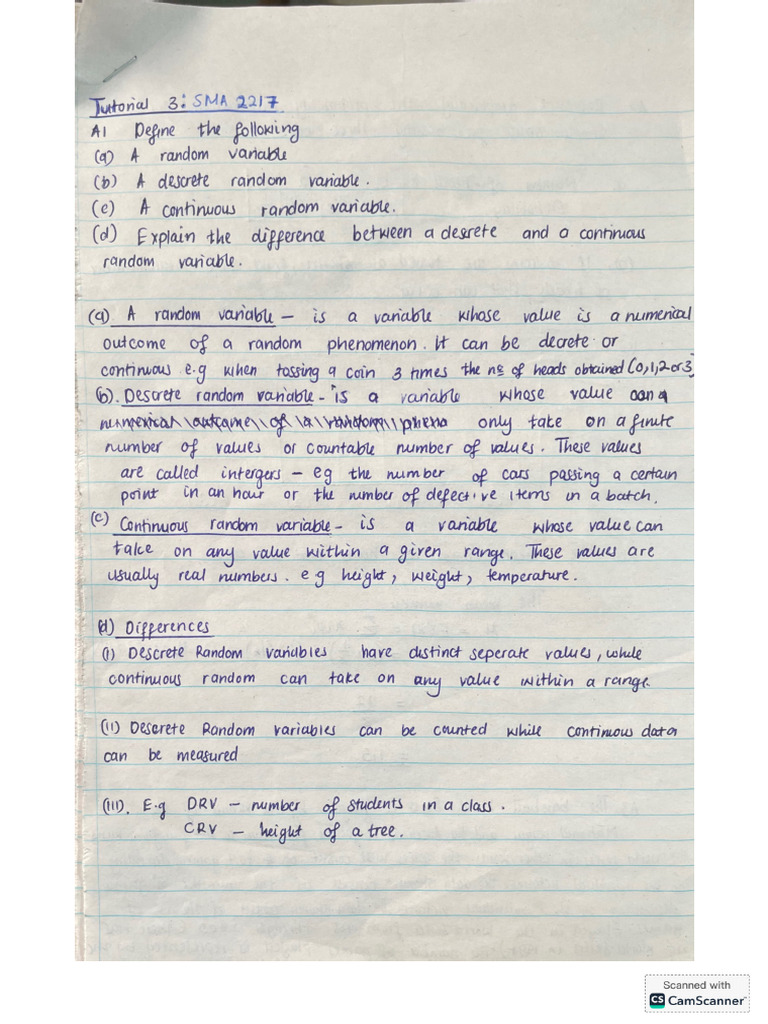 Tutorial 3: SMA 2217
A1 Define the following
(a) A random variable
(b) A descrete random variable.
(c) A continuous random variable.
(d) Explain the difference between a descrete and a continuous
random variable.
(a) A random variable – is a variable whose value is a numerical
outcome of a random phenomenon. It can be decrete or
continuous e.g when tossing a coin 3 times the no of heads obtained (0,1,2 or 3)
(b). Descrete random variable - is a variable whose value can
numerical outcome of a random pheno only take on a finite
number of values or countable number of values. These values
are called intergers – eg the number of cars passing a certain
point in an hour or the number of defective items in a batch.
(c) Continuous random variable - is a variable whose value can
take on any value within a given range. These values are
usually real numbers. eg height, weight, temperature.
(d) Differences
(i) Descrete Random variables have distinct seperate values, while
continuous random can take on any value within a range.
(ii) Descrete Random variables can be counted while continuous data
can be measured
(iii). E.g DRV – number of students in a class.
CRV – height of a tree.
Scanned with
CS CamScanner